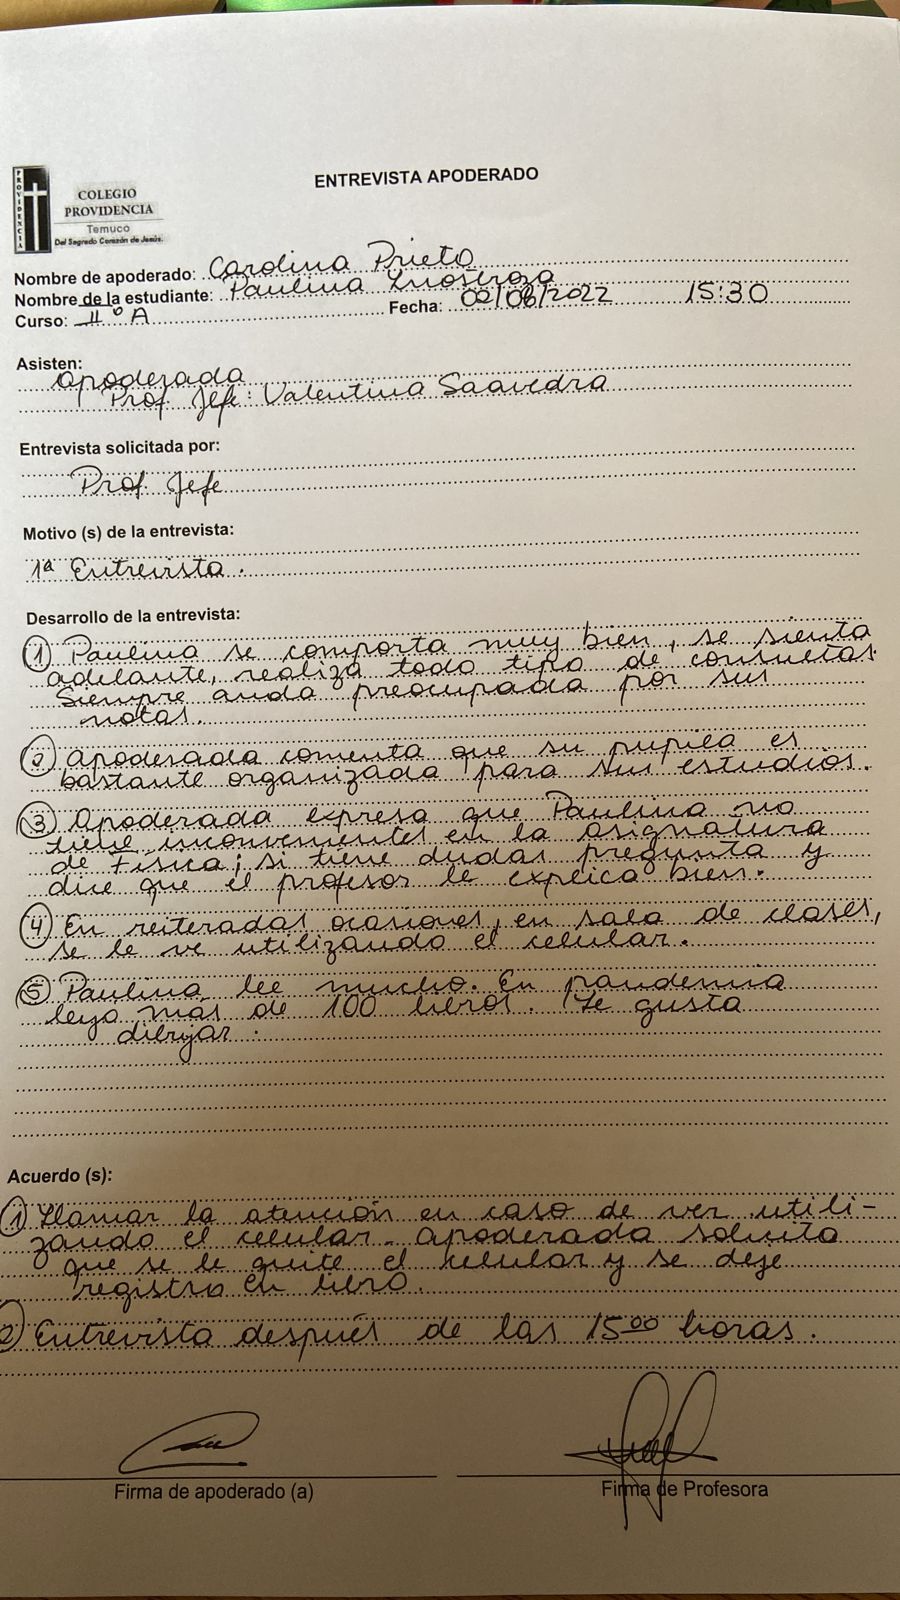 ENTREVISTA APODERADO
PROVIDENCIA
COLEGIO
PROVIDENCIA
Temuco
Del Sagrado Corazón de Jesús.
Nombre de apoderado: Carolina Prieto
Nombre de la estudiante: Paulina Inostroza
Curso: II° A Fecha: 02/08/2022 15:30
Asisten:
Apoderada
Prof. Jefe: Valentina Saavedra
Entrevista solicitada por:
Prof. Jefe
Motivo (s) de la entrevista:
1ª Entrevista.
Desarrollo de la entrevista:
① Paulina se comporta muy bien, se sienta
adelante, realiza todo tipo de consultas.
Siempre anda preocupada por sus
notas.
② Apoderada comenta que su pupila es
bastante organizada para sus estudios.
③ Apoderada expresa que Paulina no
tiene inconvenientes en la asignatura
de Física; si tiene dudas pregunta y
dice que el profesor le explica bien.
④ En reiteradas ocasiones, en sala de clases,
se le ve utilizando el celular.
⑤ Paulina lee mucho. En pandemia
leyó más de 100 libros. Le gusta
dibujar.
Acuerdo (s):
① Llamar la atención en caso de ver utili-
zando el celular. Apoderada solicita
que se le quite el celular y se deje
registro en libro.
② Entrevista después de las 15:00 horas.
Firma de apoderado (a) Firma de Profesora